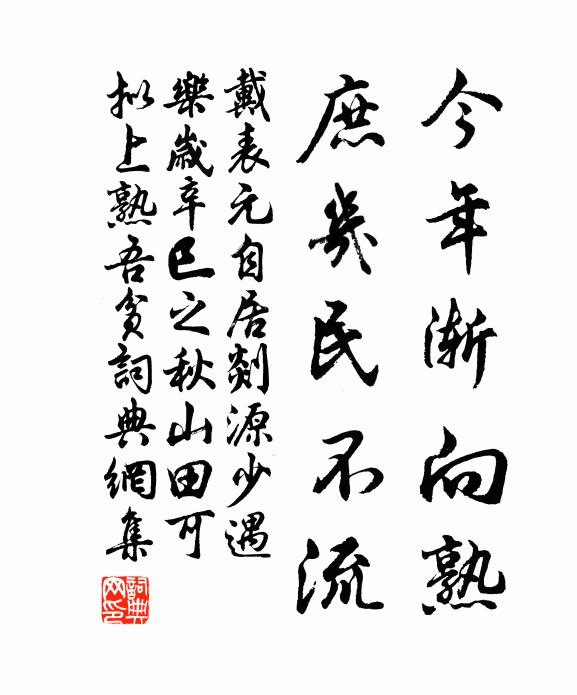 今年漸向熟
庶幾民不流
戴表元自居剡源少遇
樂歲辛巳之秋山田可
拟上熟吾貧詞典網集
詞典网印